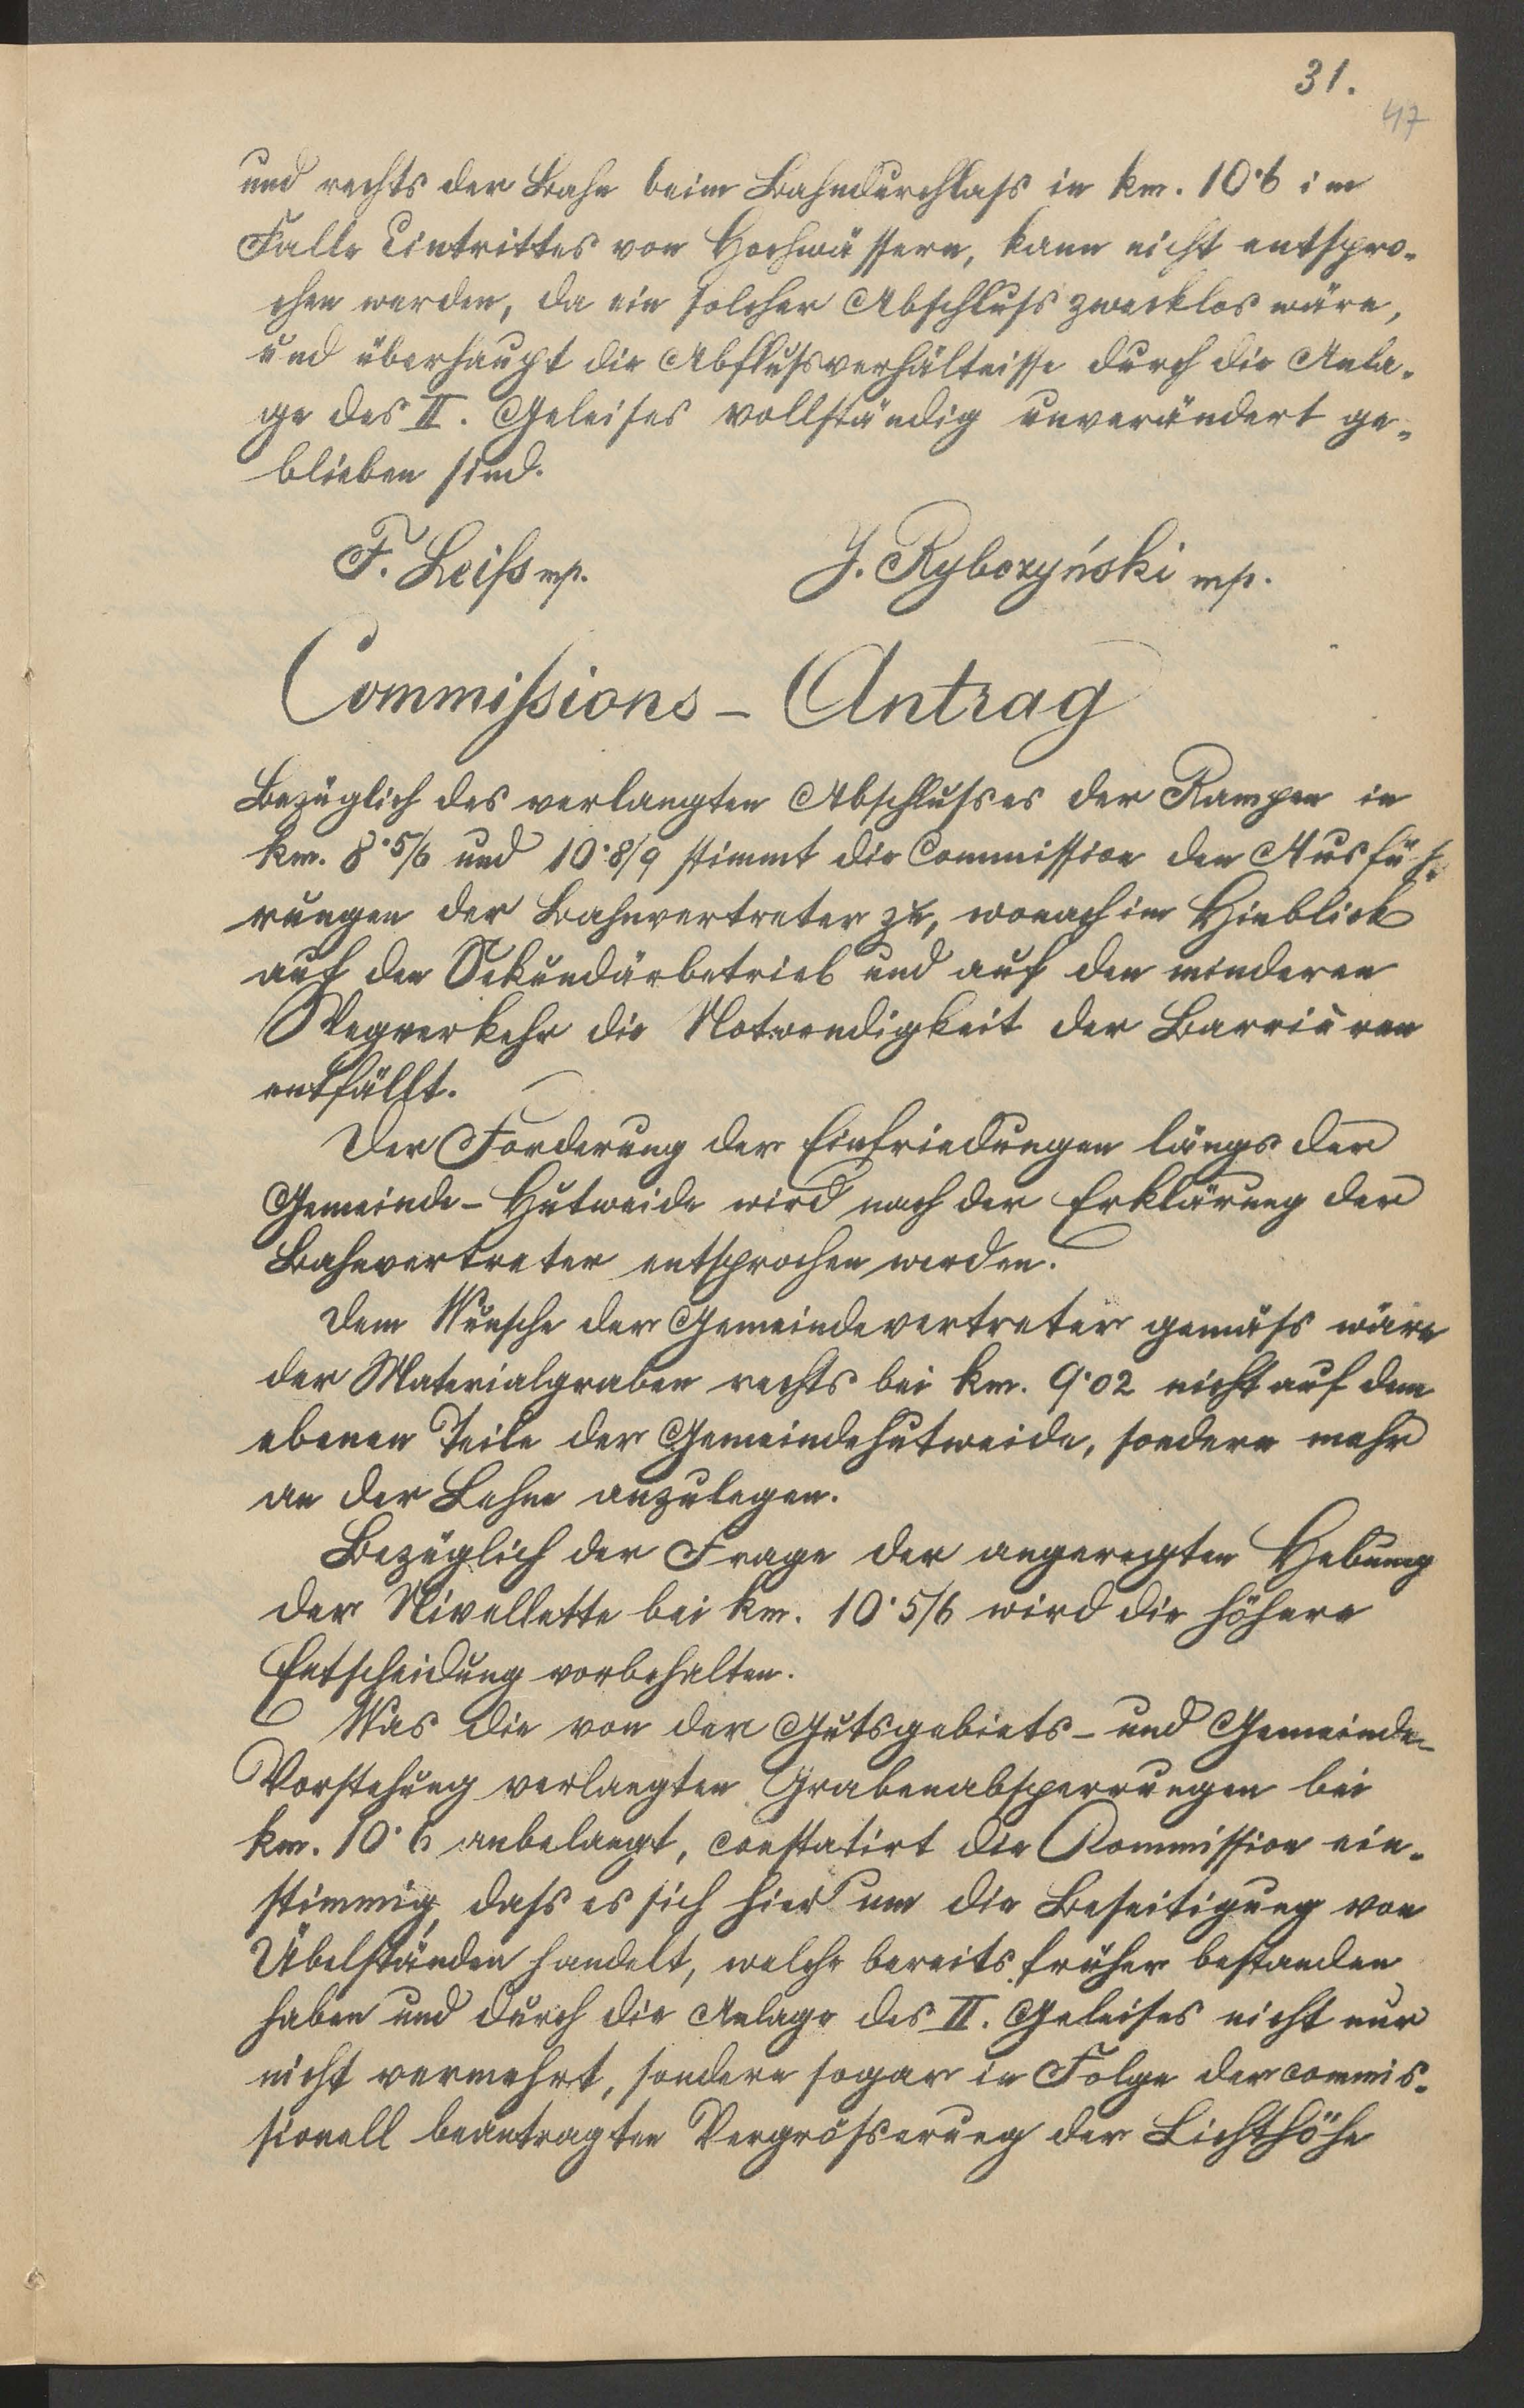 31.
47
und rechts der Bahn beim Bahndurchlass in km. 10·6 im
Falle Eintrittes von Hochwässern, kann nicht entspro-
chen werden, da ein solcher Abschluss zwecklos wäre,
und überhaupt die Abflussverhältnisse durch die Anla-
ge des II. Geleises vollständig unverändert ge-
blieben sind.
F. Leiss mp. J. Ryborzyński mp.
Commissions - Antrag
Bezüglich des verlangten Abschlusses der Rampen in
km. 8·5/6 und 10·8/9 stimmt die Commission den Ausfüh-
rungen der Bahnvertreter zu, wonach im Hinblick
auf den Sekundärbetrieb und auf den minderen
Wegverkehr die Notwendigkeit der Barrièren
entfällt.
Der Forderung der Einfriedungen längs der
Gemeinde-Hutweide wird nach der Erklärung der
Bahnvertreter entsprochen werden.
Dem Wunsche der Gemeindevertreter gemäss wäre
der Materialgraben rechts bei km. 9·02 nicht auf dem
ebenen Teile der Gemeindehutweide, sondern mehr
an der Lehne anzulegen.
Bezüglich der Frage der angeregten Hebung
der Nivellette bei km. 10·5/6 wird die höhere
Entscheidung vorbehalten.
Was die von der Gutsgebiets- und Gemeinde-
Vorstehung verlangten Grabenabsperrungen bei
km. 10·6 anbelangt, constatirt die Kommission ein-
stimmig, dass es sich hier um die Beseitigung von
Übelständen handelt, welche bereits früher bestanden
haben und durch die Anlage des II. Geleises nicht nur
nicht vermehrt, sondern sogar in Folge der commis-
sionell beantragten Vergrösserung der Lichthöhe